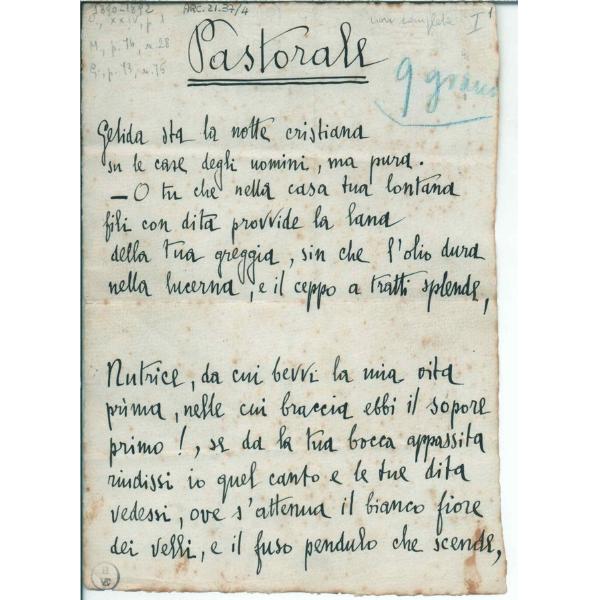 1890-1892
ARC.21.37/4
I
M., p. 76, n. 28
G., p. 73, n. 75
Pastorale
9 giugno
Gelida sta la notte cristiana
su le case degli uomini, ma pura.
— O tu che nella casa tua lontana
fili con dita provvide la lana
della tua greggia, sin che l'olio dura
nella lucerna, e il ceppo a tratti splende,
Nutrice, da cui bevvi la mia vita
prima, nelle cui braccia ebbi il sopore
primo!, se da la tua bocca appassita
rindissi io quel canto e le tue dita
vedessi, ove s'attenua il bianco fiore
dei velli, e il fuso pendulo che scende,